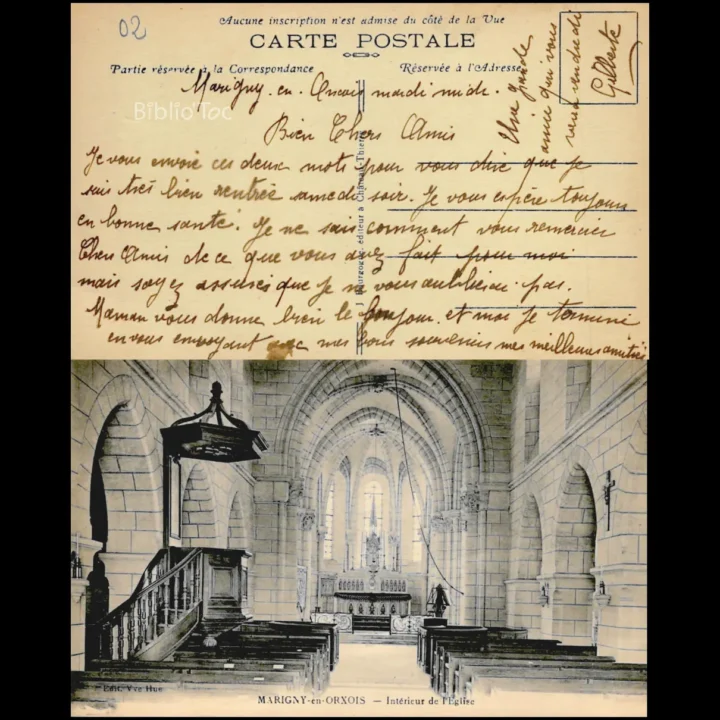 02
Aucune inscription n'est admise du côté de la Vue
CARTE POSTALE
Partie réservée à la Correspondance
Réservée à l'Adresse
Biblio'Toc
Marigny. en. Orxois mardi midi.
Bien Chers Amis
Je vous envoie ces deux mots pour vous dire que je
suis très bien rentrée samedi soir. Je vous espère toujours
en bonne santé. Je ne sais comment vous remercier
Chers Amis de ce que vous avez fait pour moi
mais soyez assurés que je ne vous oublierai pas.
Maman vous donne bien le bonjour et moi je termine
en vous envoyant avec mes bons souvenirs mes meilleures amitiés
Une grande
amie qui vous
verra vendredi
Gilberte
J. Bourgogne, éditeur à Château-Thierry
Edit. Vve Hue
MARIGNY-en-ORXOIS — Intérieur de l'Eglise